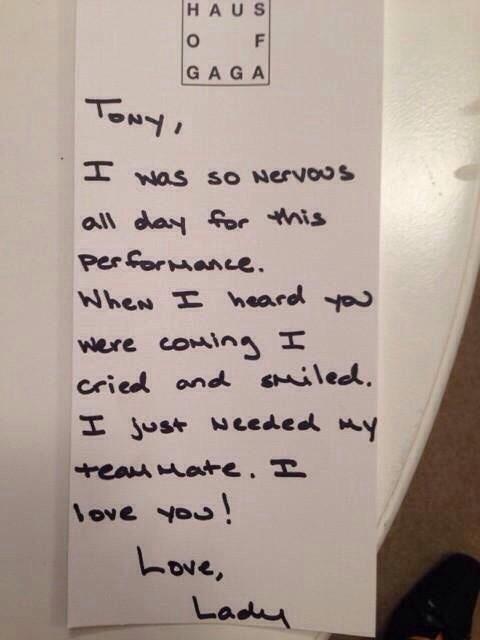 HAUS
O F
GAGA
Tony,
I was so nervous
all day for this
performance.
When I heard you
were coming I
cried and smiled.
I just needed my
teammate. I
love you!
Love,
Lady